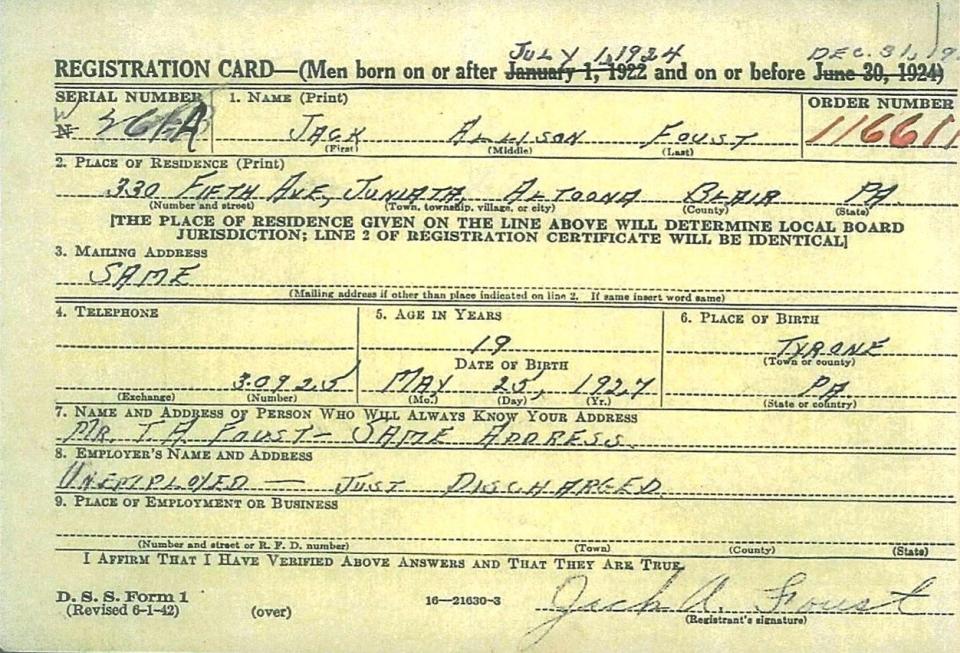 JULY 1, 1924 DEC. 31, 19
REGISTRATION CARD—(Men born on or after January 1, 1922 and on or before June 30, 1924)
SERIAL NUMBER 1. NAME (Print) ORDER NUMBER
W
N JACK ALLISON FOUST 11661
(First) (Middle) (Last)
2. PLACE OF RESIDENCE (Print)
330 FIFTH AVE, JUNIATA, ALTOONA BLAIR PA.
(Number and street) (Town, township, village, or city) (County) (State)
[THE PLACE OF RESIDENCE GIVEN ON THE LINE ABOVE WILL DETERMINE LOCAL BOARD
JURISDICTION; LINE 2 OF REGISTRATION CERTIFICATE WILL BE IDENTICAL]
3. MAILING ADDRESS
SAME
(Mailing address if other than place indicated on line 2. If same insert word same)
4. TELEPHONE 5. AGE IN YEARS 6. PLACE OF BIRTH
19 TYRONE
DATE OF BIRTH (Town or county)
30925 MAY 25, 1927 PA
(Exchange) (Number) (Mo.) (Day) (Yr.) (State or country)
7. NAME AND ADDRESS OF PERSON WHO WILL ALWAYS KNOW YOUR ADDRESS
MR. T. A. FOUST - SAME ADDRESS
8. EMPLOYER'S NAME AND ADDRESS
UNEMPLOYED — JUST DISCHARGED
9. PLACE OF EMPLOYMENT OR BUSINESS
(Number and street or R. F. D. number) (Town) (County) (State)
I AFFIRM THAT I HAVE VERIFIED ABOVE ANSWERS AND THAT THEY ARE TRUE.
D. S. S. Form 1
(Revised 6-1-42) (over) 16—21630-3 Jack A. Foust
(Registrant's signature)